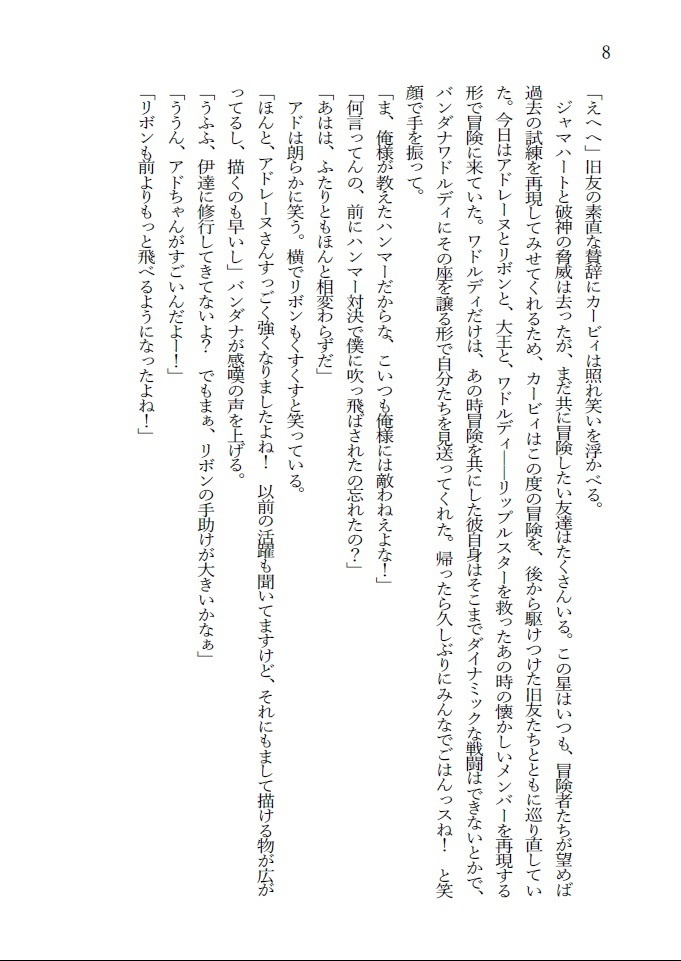 8
「えへへ」旧友の素直な賛辞にカービィは照れ笑いを浮かべる。
　ジャマハートと破神の脅威は去ったが、まだ共に冒険したい友達はたくさんいる。この星はいつも、冒険者たちが望めば
過去の試練を再現してみせてくれるため、カービィはこの度の冒険を、後から駆けつけた旧友たちとともに巡り直してい
た。今日はアドレーヌとリボンと、大王と、ワドルディ――リップルスターを救ったあの時の懐かしいメンバーを再現する
形で冒険に来ていた。ワドルディだけは、あの時冒険を共にした彼自身はそこまでダイナミックな戦闘はできないとかで、
バンダナワドルディにその座を譲る形で自分たちを見送ってくれた。帰ったら久しぶりにみんなでごはんっスね！　と笑
顔で手を振って。
「ま、俺様が教えたハンマーだからな、こいつも俺様には敵わねえよな！」
「何言ってんの、前にハンマー対決で僕に吹っ飛ばされたの忘れたの？」
「あはは、ふたりともほんと相変わらずだ」
　アドは朗らかに笑う。横でリボンもくすくすと笑っている。
「ほんと、アドレーヌさんすっごく強くなりましたよね！　以前の活躍も聞いてますけど、それにもまして描ける物が広が
ってるし、描くのも早いし」バンダナが感嘆の声を上げる。
「うふふ、伊達に修行してきてないよ？　でもまぁ、リボンの手助けが大きいかなぁ」
「ううん、アドちゃんがすごいんだよー！」
「リボンも前よりもっと飛べるようになったよね！」